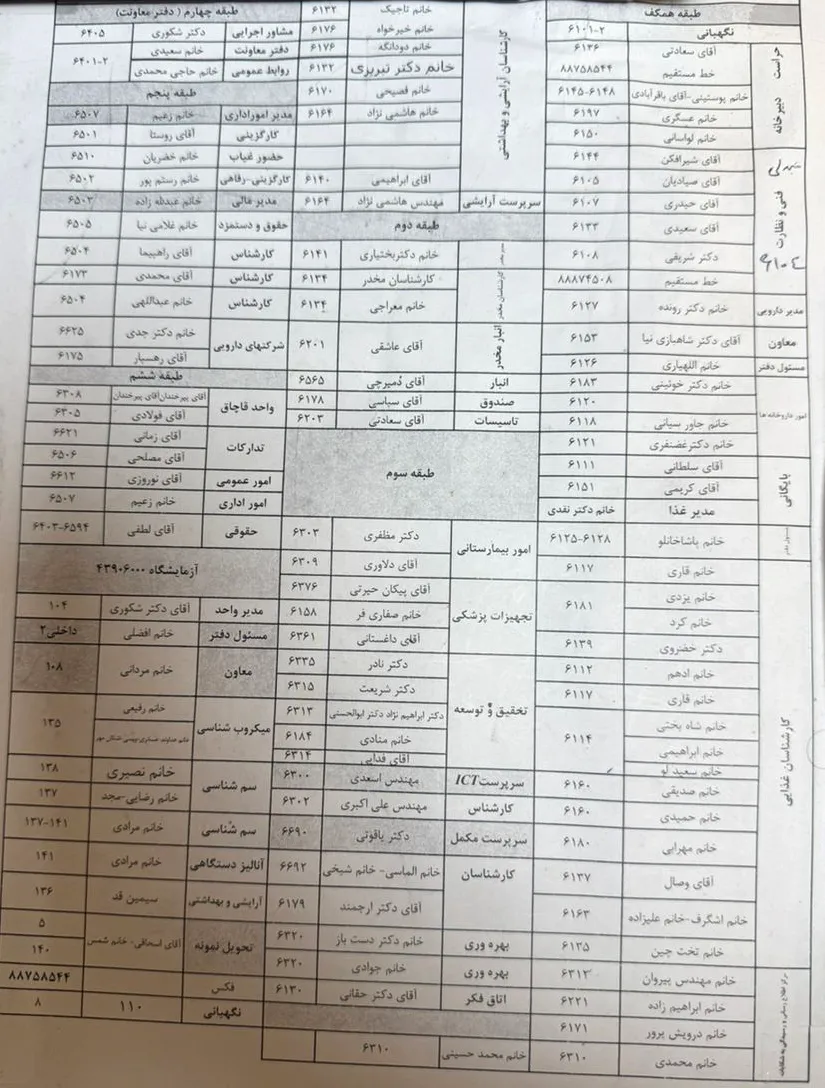 طبقه همکف
نگهبانی ۶۱۰۱-۲
حراست آقای سعادتی ۶۱۳۶
خط مستقیم ۸۸۷۵۸۵۴۴
دبیرخانه خانم پوستینی-آقای باقرآبادی ۶۱۴۵-۶۱۴۸
خانم عسگری ۶۱۹۷
خانم لواسانی ۶۱۵۰
فنی و نظارت آقای شیرافکن ۶۱۴۴
آقای صیادیان ۶۱۰۵
آقای حیدری ۶۱۰۷
آقای سعیدی ۶۱۳۳
۶۱۰۴
دکتر شریفی ۶۱۰۸
خط مستقیم ۸۸۸۷۴۵۰۸
مدیر دارویی خانم دکتر رونده ۶۱۲۷
معاون آقای دکتر شاهبازی نیا ۶۱۵۳
مسئول دفتر خانم اللهیاری ۶۱۲۶
امور داروخانه ها خانم دکتر خوئینی ۶۱۸۳
۶۱۲۰
خانم جاور سیانی ۶۱۱۸
خانم دکترغضنفری ۶۱۲۱
بایگانی آقای سلطانی ۶۱۱۱
آقای کریمی ۶۱۵۱
مدیر غذا خانم دکتر نقدی
مسئول دفتر خانم پاشاخانلو ۶۱۲۵-۶۱۲۸
کارشناسان غذایی خانم قاری ۶۱۱۷
خانم یزدی ۶۱۸۱
خانم کرد
دکتر خضروی ۶۱۳۹
خانم ادهم ۶۱۱۲
خانم قاری ۶۱۱۷
خانم شاه بختی ۶۱۱۴
خانم ابراهیمی
خانم سعید لو
خانم صدیقی ۶۱۶۰
خانم حمیدی ۶۱۶۰
خانم مهرابی ۶۱۸۰
آقای وصال ۶۱۳۷
خانم اشگرف-خانم علیزاده ۶۱۶۳
خانم تخت چین ۶۱۳۵
مرکز اطلاع رسانی و رسیدگی به شکایات خانم مهندس پیروان ۶۳۱۲
خانم ابراهیم زاده ۶۲۲۱
خانم درویش پرور ۶۱۷۱
خانم محمدی ۶۳۱۰
کارشناسان آرایشی و بهداشتی خانم تاجیک ۶۱۳۲
خانم خیرخواه ۶۱۷۶
خانم دودانگه ۶۱۷۶
خانم دکتر تبریزی ۶۱۳۲
خانم فصیحی ۶۱۷۰
خانم هاشمی نژاد ۶۱۶۴
آقای ابراهیمی ۶۱۴۰
سرپرست آرایشی مهندس هاشمی نژاد ۶۱۶۴
طبقه دوم
خانم دکتربختیاری ۶۱۴۱
کارشناسان مخدر کارشناسان مخدر ۶۱۳۴
خانم معراجی ۶۱۳۴
انبار مخدر آقای عاشقی ۶۲۰۱
انبار آقای دُمیرچی ۶۵۶۵
صندوق آقای سپاسی ۶۱۷۸
تاسیسات آقای سعادتی ۶۲۰۳
طبقه سوم
امور بیمارستانی دکتر مظفری ۶۳۰۳
آقای دلاوری ۶۳۰۹
تجهیزات پزشکی آقای پیکان حیرتی ۶۳۷۶
خانم صفاری فر ۶۱۵۸
آقای داغستانی ۶۳۶۱
تحقیق و توسعه دکتر نادر ۶۳۳۵
دکتر شریعت ۶۳۱۵
دکتر ابراهیم نژاد دکتر ابوالحسنی ۶۳۱۳
خانم منادی ۶۱۸۴
آقای فدایی ۶۳۱۴
سرپرست ICT مهندس اسعدی ۶۳۰۰
کارشناس مهندس علی اکبری ۶۳۰۲
سرپرست مکمل دکتر یاقوتی ۶۶۹۰
کارشناسان خانم الماسی- خانم شیخی ۶۶۹۲
آقای دکتر ارجمند ۶۱۷۹
بهره وری خانم دکتر دست باز ۶۳۲۰
بهره وری خانم جوادی ۶۳۲۰
اتاق فکر آقای دکتر حقانی ۶۱۳۰
خانم محمد حسینی ۶۳۱۰
طبقه چهارم ( دفتر معاونت)
مشاور اجرایی دکتر شکوری ۶۴۰۵
دفتر معاونت خانم سعیدی ۶۴۰۱-۲
روابط عمومی خانم حاجی محمدی
طبقه پنجم
مدیر اموراداری خانم زعیم ۶۵۰۷
کارگزینی آقای روستا ۶۵۰۱
حضور غیاب خانم خضریان ۶۵۱۰
کارگزینی-رفاهی خانم رستم پور ۶۵۰۲
مدیر مالی خانم عبدالله زاده ۶۵۰۳
حقوق و دستمزد خانم غلامی نیا ۶۵۰۵
کارشناس آقای راهپیما ۶۵۰۴
کارشناس آقای محمدی ۶۱۷۳
کارشناس خانم عبداللهی ۶۵۰۴
شرکتهای دارویی خانم دکتر جدی ۶۶۲۵
آقای رهسپار ۶۱۷۵
طبقه ششم
واحد قاچاق آقای پیرخندان آقای پیرخندان ۶۳۰۸
آقای فولادی ۶۳۰۵
تدارکات آقای زمانی ۶۶۲۱
آقای مصلحی ۶۵۰۶
امور عمومی آقای نوروزی ۶۶۱۲
امور اداری خانم زعیم ۶۵۰۷
حقوقی آقای لطفی ۶۴۰۳-۶۵۹۴
آزمایشگاه ۴۳۹۰۶۰۰۰
مدیر واحد آقای دکتر شکوری ۱۰۴
مسئول دفتر خانم افضلی داخلی۲
معاون خانم مردانی ۱۰۸
میکروب شناسی خانم رفیعی ۱۳۵
سم شناسی خانم نصیری ۱۳۸
خانم رضایی-مجد ۱۳۷
سم شناسی خانم مرادی ۱۳۷-۱۴۱
آنالیز دستگاهی خانم مرادی ۱۴۱
آرایشی و بهداشتی سیمین قد ۱۳۶
تحویل نمونه آقای اسحاقی- خانم شمس ۵
۱۴۰
فکس ۸۸۷۵۸۵۴۴
نگهبانی ۱۱۰ ۸